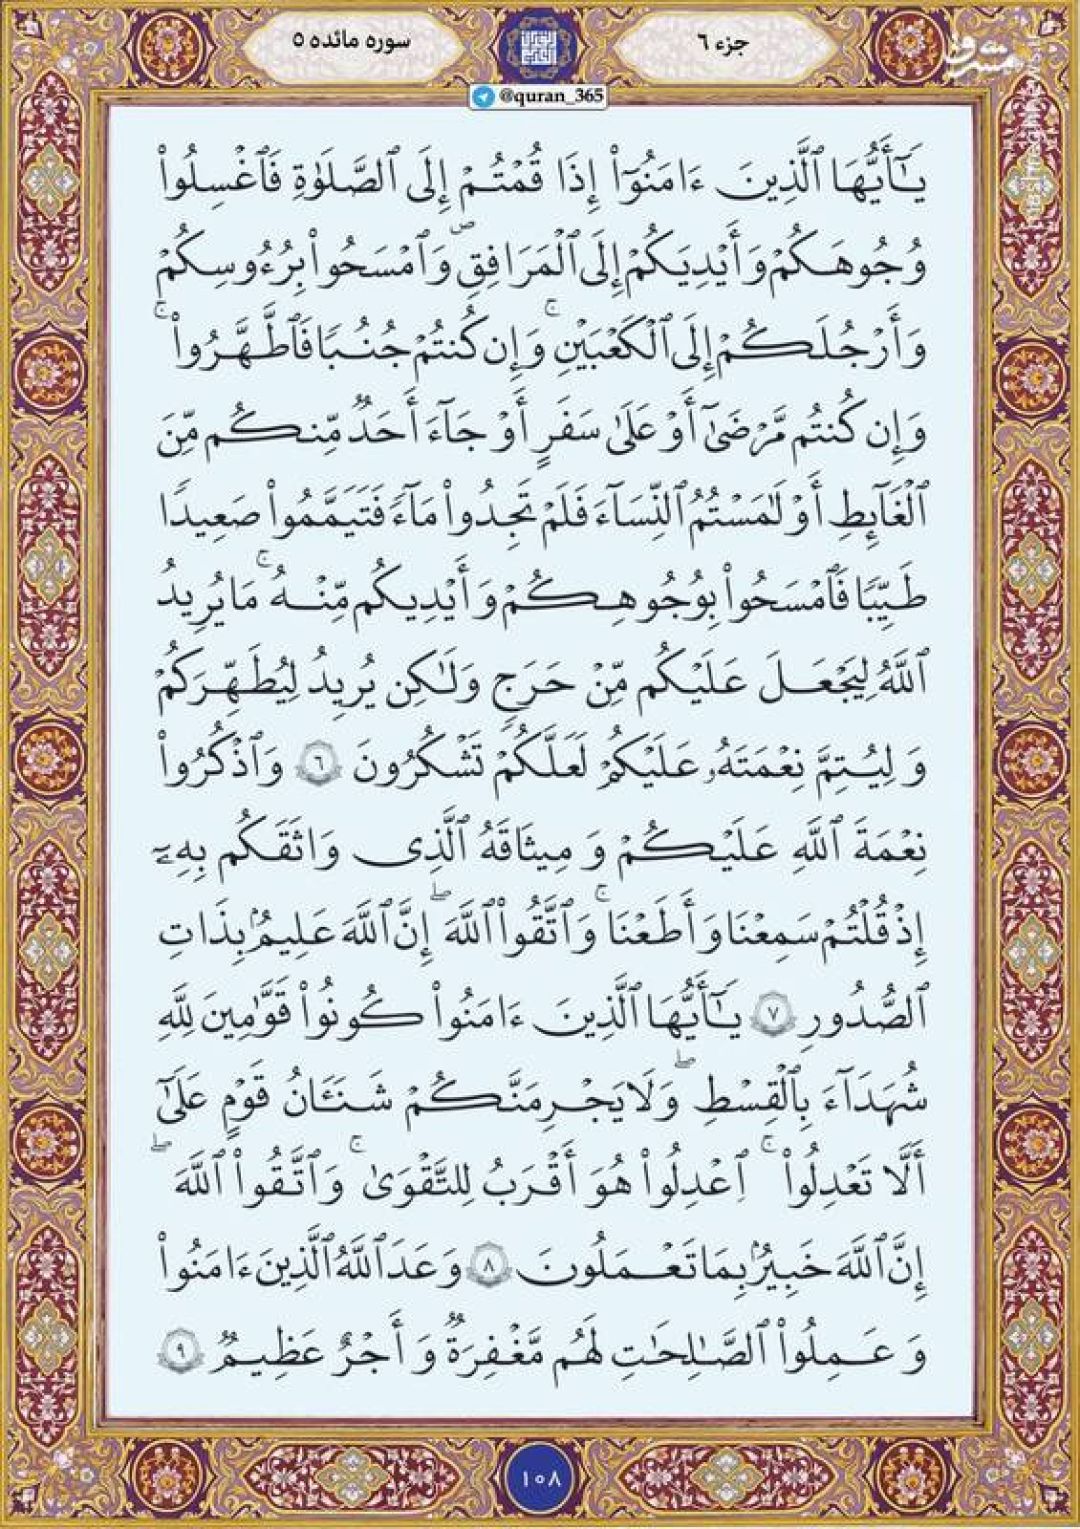 جزء ۶
سوره مائده ۵
مشرق
@quran_365
يَـٰٓأَيُّهَا ٱلَّذِينَ ءَامَنُوٓا۟ إِذَا قُمْتُمْ إِلَى ٱلصَّلَوٰةِ فَٱغْسِلُوا۟
وُجُوهَكُمْ وَأَيْدِيَكُمْ إِلَى ٱلْمَرَافِقِۖ وَٱمْسَحُوا۟ بِرُءُوسِكُمْ
وَأَرْجُلَكُمْ إِلَى ٱلْكَعْبَيْنِۚ وَإِن كُنتُمْ جُنُبًا فَٱطَّهَّرُوا۟ۚ
وَإِن كُنتُم مَّرْضَىٰٓ أَوْ عَلَىٰ سَفَرٍ أَوْ جَآءَ أَحَدٌ مِّنكُم مِّنَ
ٱلْغَآئِطِ أَوْ لَـٰمَسْتُمُ ٱلنِّسَآءَ فَلَمْ تَجِدُوا۟ مَآءً فَتَيَمَّمُوا۟ صَعِيدًا
طَيِّبًا فَٱمْسَحُوا۟ بِوُجُوهِكُمْ وَأَيْدِيكُم مِّنْهُۚ مَا يُرِيدُ
ٱللَّهُ لِيَجْعَلَ عَلَيْكُم مِّنْ حَرَجٍ وَلَـٰكِن يُرِيدُ لِيُطَهِّرَكُمْ
وَلِيُتِمَّ نِعْمَتَهُۥ عَلَيْكُمْ لَعَلَّكُمْ تَشْكُرُونَ ۶ وَٱذْكُرُوا۟
نِعْمَةَ ٱللَّهِ عَلَيْكُمْ وَمِيثَاقَهُ ٱلَّذِى وَاثَقَكُم بِهِۦٓ
إِذْ قُلْتُمْ سَمِعْنَا وَأَطَعْنَاۚ وَٱتَّقُوا۟ ٱللَّهَۖ إِنَّ ٱللَّهَ عَلِيمٌۢ بِذَاتِ
ٱلصُّدُورِ ۷ يَـٰٓأَيُّهَا ٱلَّذِينَ ءَامَنُوا۟ كُونُوا۟ قَوَّٰمِينَ لِلَّهِ
شُهَدَآءَ بِٱلْقِسْطِۖ وَلَا يَجْرِمَنَّكُمْ شَنَـَٔانُ قَوْمٍ عَلَىٰٓ
أَلَّا تَعْدِلُوا۟ۚ ٱعْدِلُوا۟ هُوَ أَقْرَبُ لِلتَّقْوَىٰۚ وَٱتَّقُوا۟ ٱللَّهَۖ
إِنَّ ٱللَّهَ خَبِيرٌۢ بِمَا تَعْمَلُونَ ۸ وَعَدَ ٱللَّهُ ٱلَّذِينَ ءَامَنُوا۟
وَعَمِلُوا۟ ٱلصَّـٰلِحَـٰتِ لَهُم مَّغْفِرَةٌ وَأَجْرٌ عَظِيمٌ ۹
۱۰۸